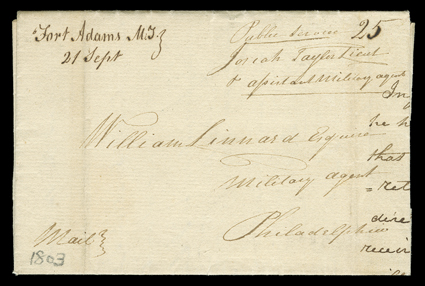 Fort Adams M.T.
21 Sept
Public Service 25
Josiah Taylor Lieut
& assistant Military agent
William Linnard Esquire
Military agent
Philadelphia
Mail
1803
In
he h
that
ret
dire
receiv